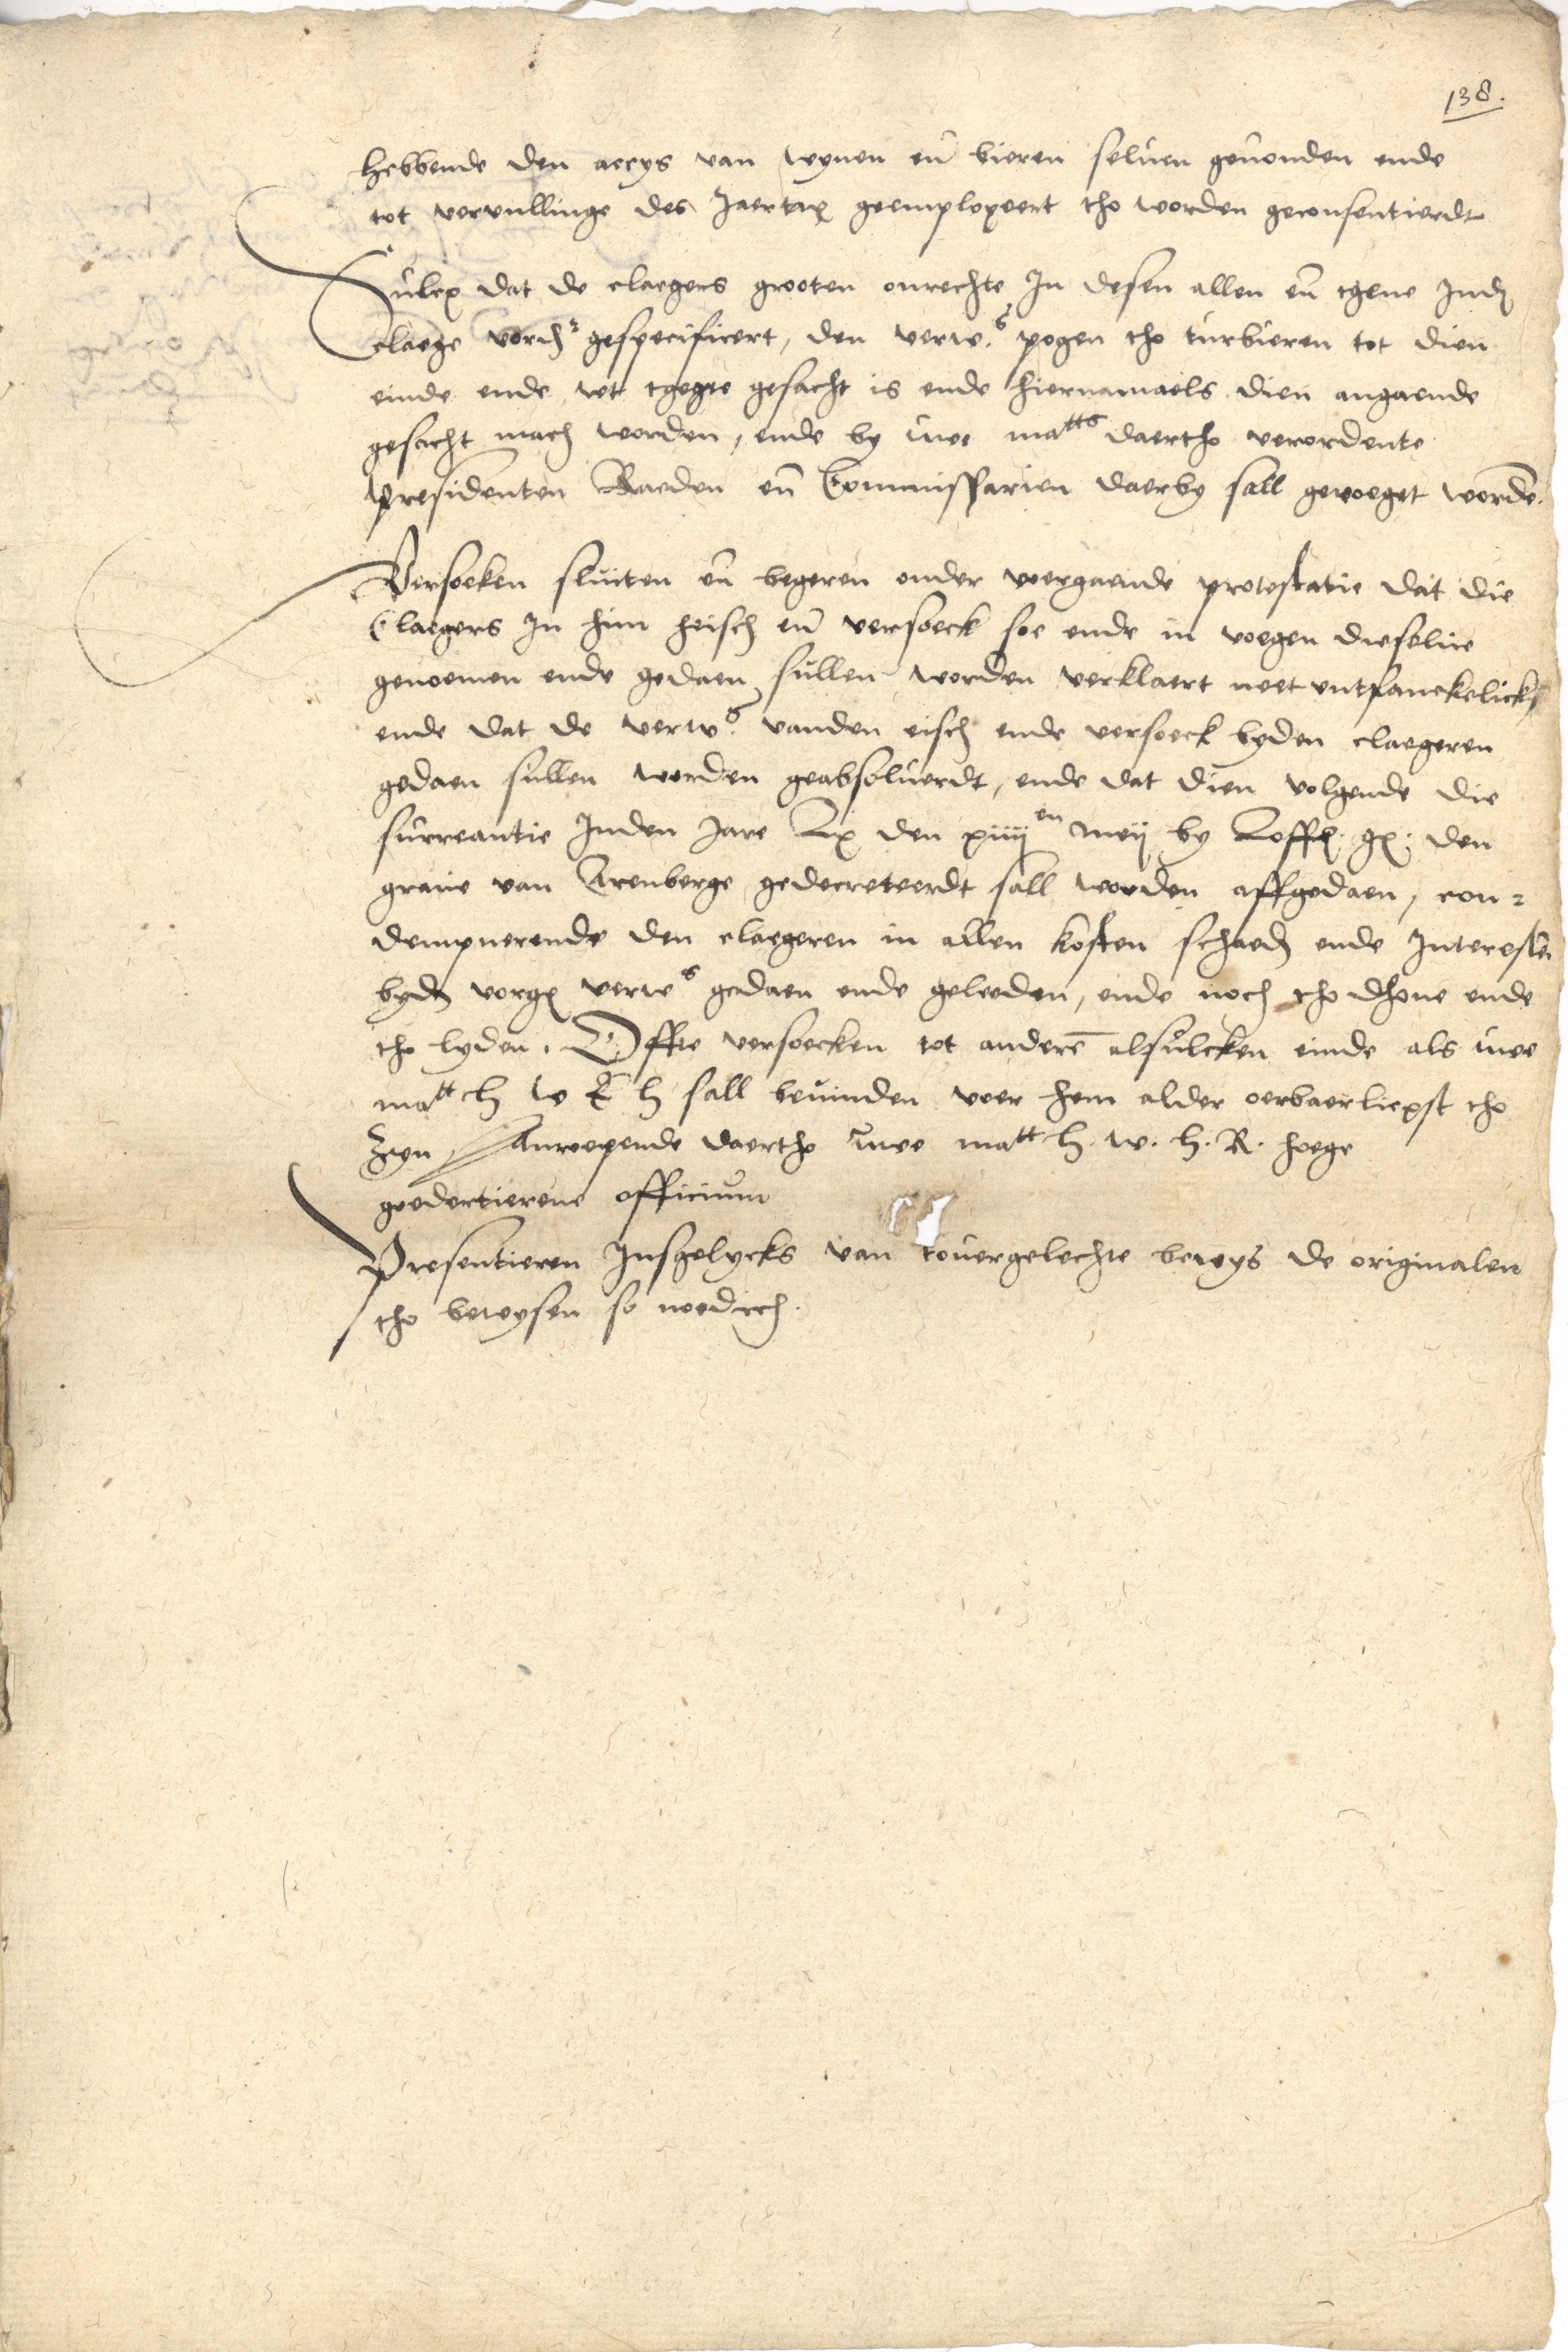 138.
hebbende den accys van wynen en̄ bieren seluen geuonden ende
tot vervullinge des Jaertax geemployeert tho worden geconsentierdt
Sulcx dat de claegers grooten onrechte In desen allen en̄ tgene Ind
claege vorsch gespecificert, den verw.s pogen tho turbieren tot dien
einde ende wt tgene gesacht is ende hiernamaels dien angaende
gesacht mach worden, ende by uwe matts daertho verordente
presidenten Raeden en̄ Commissarien daerby sall gevoeget worden.
Versoeken sluiten en̄ begeren onder voergaende protestatie dat die
Claegers In him heisch en̄ versoeck soe ende in voegen dieselue
genoemen ende gedaen sullen worden verklaert neet entfanckelick
ende dat de verw.s vanden eisch ende versoeck byden claegeren
gedaen sullen worden geabsoluerdt, ende dat dien volgende die
surceantie Inden Jare Lx den xiiij en meij by den
graue van Arenberge gedecreteerdt sall worden affgedaen, con-
dempnerende den claegeren in allen kosten schaed ende Interesse
byd vorg verw s gedaen ende geleeden, ende noch tho dhone ende
tho lyden. Offte versoecken tot anderē alsulcken einde als uwe
matt h w E h sall beuinden voer hem alder oerbaerliexst tho
zyn Anroepende daertho uwe matt h. w. h. R. hoege
goedertierene officium
Presentieren Insgelycks van touergelechte bewys de originalen
tho bewysen so noedich.